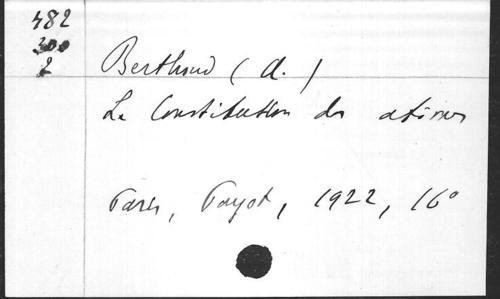 482
300
2
Berthoud (A.)
La Constitution des atomes
Paris, Payot, 1922, 16°